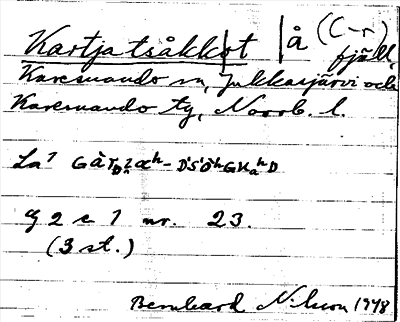 Kartjatsåkkot | å (C-r)
fjäll,
Karesuando sn, Jukkasjärvi och
Karesuando tg, Norrb. l.
La⁷
G 2 e 7 nr. 23.
(3 st.)
Bernhard Nilsson 1948